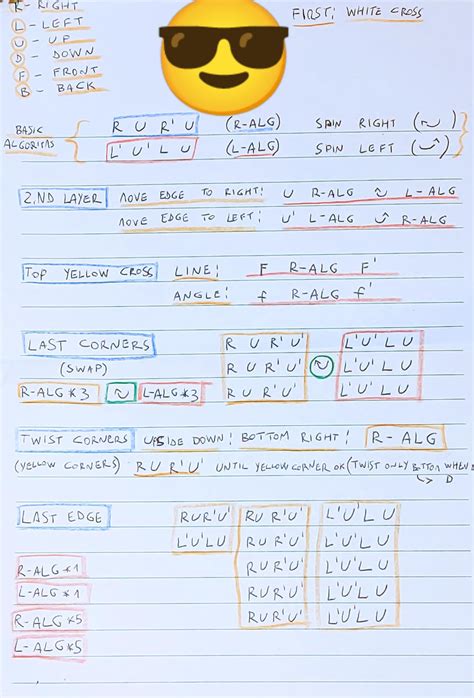 R- RIGHT
L - LEFT
U - UP
D - DOWN
F - FRONT
B - BACK
FIRST: WHITE CROSS
BASIC ALGORITMS
R U R' U (R-ALG) SPIN RIGHT
L' U' L U (L-ALG) SPIN LEFT
2.ND LAYER MOVE EDGE TO RIGHT: U R-ALG L-ALG
MOVE EDGE TO LEFT: U' L-ALG R-ALG
TOP YELLOW CROSS LINE: F R-ALG F'
ANGLE: f R-ALG f'
LAST CORNERS R U R' U' L' U' L U
(SWAP) R U R' U' L' U' L U
R-ALG*3 L-ALG*3 R U R' U' L' U' L U
TWIST CORNERS UPSIDE DOWN: BOTTOM RIGHT: R-ALG
(YELLOW CORNERS) R U R' U' UNTIL YELLOW CORNER OK (TWIST ONLY BOTTOM WHEN
D
LAST EDGE R U R' U' R U R' U' L' U' L U
L' U' L U R U R' U' L' U' L U
R-ALG*1 R U R' U' L' U' L U
L-ALG*1 R U R' U' L' U' L U
R-ALG*5 R U R' U' L' U' L U
L-ALG*5